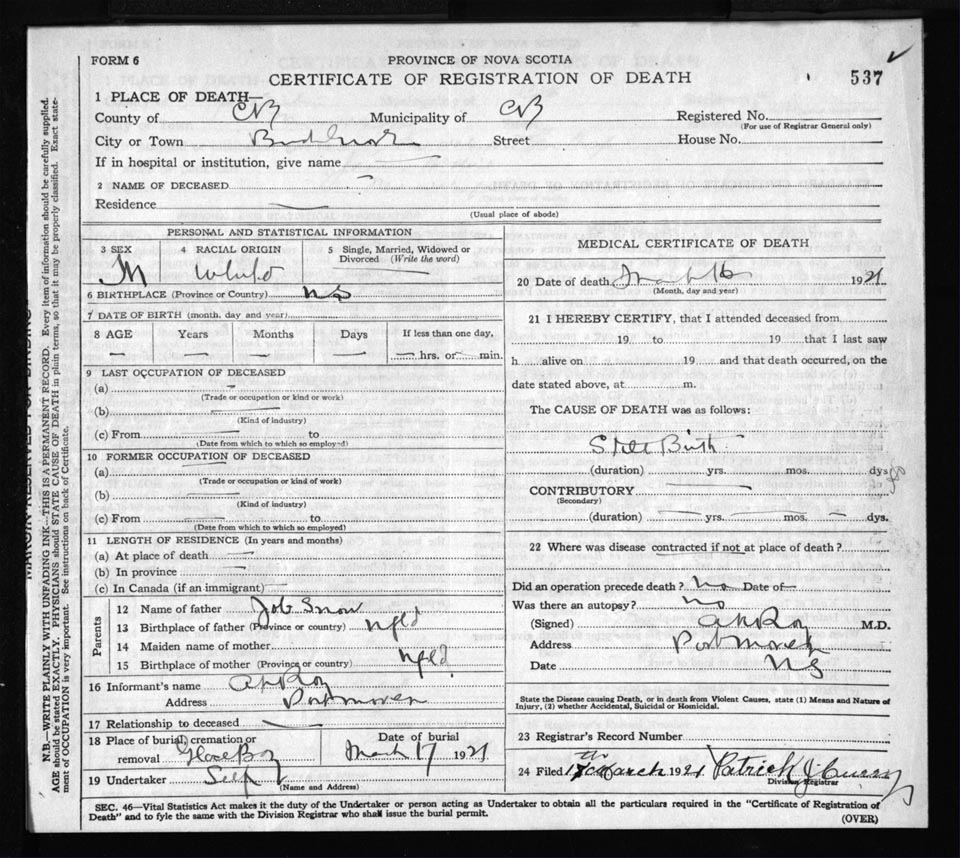 FORM 6
PROVINCE OF NOVA SCOTIA
CERTIFICATE OF REGISTRATION OF DEATH
537
1 PLACE OF DEATH—
County of CB Municipality of CB Registered No.
(For use of Registrar General only)
City or Town Street House No.
If in hospital or institution, give name
2 NAME OF DECEASED
Residence
(Usual place of abode)
PERSONAL AND STATISTICAL INFORMATION
3 SEX 4 RACIAL ORIGIN 5 Single, Married, Widowed or Divorced (Write the word)
M White
6 BIRTHPLACE (Province or Country) NS
7 DATE OF BIRTH (month, day and year)
8 AGE Years Months Days If less than one day,
— — — — — hrs. or — min.
9 LAST OCCUPATION OF DECEASED
(a)
(Trade or occupation or kind or work)
(b)
(Kind of industry)
(c) From to
(Date from which to which so employed)
10 FORMER OCCUPATION OF DECEASED
(a)
(Trade or occupation or kind of work)
(b)
(Kind of industry)
(c) From to
(Date from which to which so employed)
11 LENGTH OF RESIDENCE (In years and months)
(a) At place of death —
(b) In province —
(c) In Canada (if an immigrant) —
Parents
12 Name of father Job Snow
13 Birthplace of father (Province or country) Nfld
14 Maiden name of mother
15 Birthplace of mother (Province or country) Nfld
16 Informant's name Roy
Address Port Morien
17 Relationship to deceased —
18 Place of burial, cremation or removal Glace Bay
Date of burial March 17 1921
19 Undertaker Self
(Name and Address)
MEDICAL CERTIFICATE OF DEATH
20 Date of death March 16 1921
(Month, day and year)
21 I HEREBY CERTIFY, that I attended deceased from
19 to 19 that I last saw
h alive on 19 and that death occurred, on the
date stated above, at m.
The CAUSE OF DEATH was as follows:
Still Birth
(duration) yrs. mos. dys
CONTRIBUTORY
(Secondary)
(duration) — yrs. — mos. — dys.
22 Where was disease contracted if not at place of death?
Did an operation precede death? No Date of —
Was there an autopsy? No
(Signed) Roy M.D.
Address Port Morien
Date NS
State the Disease causing Death, or in death from Violent Causes, state (1) Means and Nature of
Injury, (2) whether Accidental, Suicidal or Homicidal.
23 Registrar's Record Number
24 Filed 17th March 1921 Patrick J Curry
Division Registrar
SEC. 46—Vital Statistics Act makes it the duty of the Undertaker or person acting as Undertaker to obtain all the particulars required in the "Certificate of Registration of
Death" and to fyle the same with the Division Registrar who shall issue the burial permit.
(OVER)
MARGIN RESERVED FOR BINDING
N.B.—WRITE PLAINLY WITH UNFADING INK—THIS IS A PERMANENT RECORD. Every item of information should be carefully supplied.
AGE should be stated EXACTLY. PHYSICIANS should STATE CAUSE OF DEATH in plain terms, so that it may be properly classified. Exact state-
ment of OCCUPATION is very important. See instructions on back of Certificate.